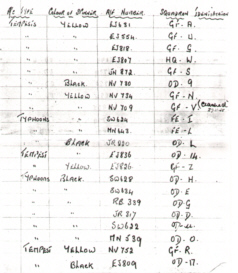 A/c Type Colour of Spinner A/c Number Squadron Identification
TEMPESTS YELLOW EJ651 GF - A.
" " EJ554. GF - U.
" " EJ818. GF - G.
" " EJ807 HQ - W.
" " JN 872. GF - S
" BLACK. NV 720 OD - 9
" YELLOW NV 724 GF - N
" " NV 709 GF - V
TYPHOONS " SW624 FE - I
" " MN603. FE - L
" BLACK JR 220 OD - L
TEMPEST " EJ836 OD - 14.
" YELLOW EJ826 GF - Z
TYPHOONS BLACK. SW628 OD - H.
" " SW634 OD - E
" " RB 339 OD - G
" " JR 217 OD - D.
" " SW622
" " MN 539 OD - O.
TEMPEST YELLOW NV 752 GF - R.
" BLACK EJ809 OD - M.